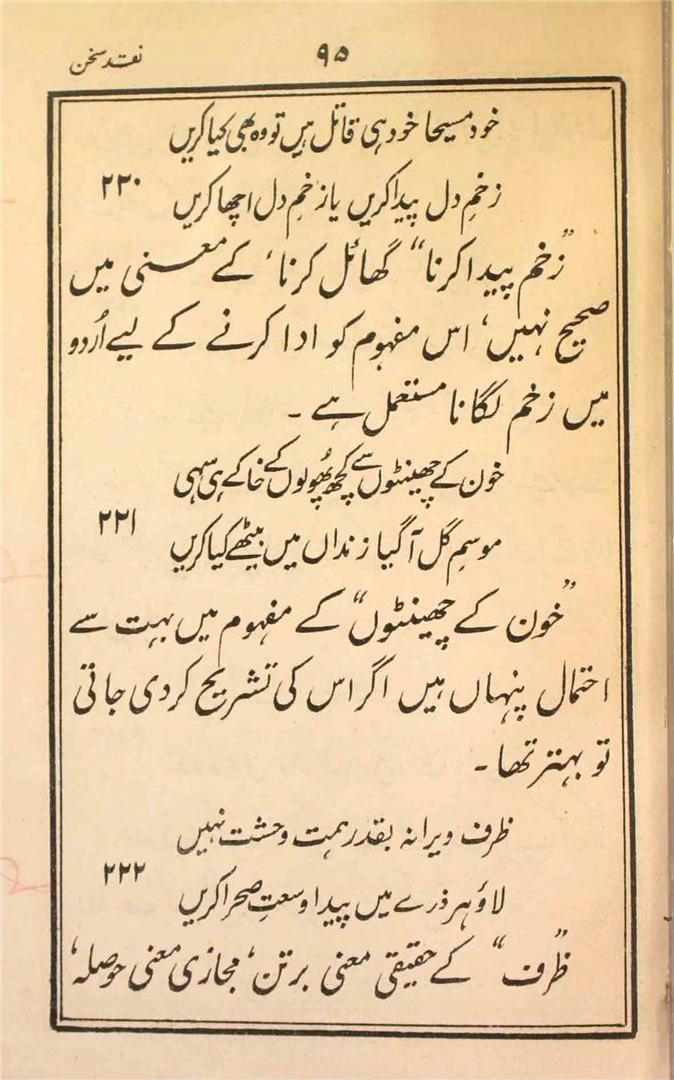 نقد سخن
۹۵
خود مسیحا خود ہی قاتل ہیں تو وہ بھی کیا کریں
زخمِ دل پیدا کریں یا زخمِ دل اچھا کریں
۲۲۰
”زخم پیدا کرنا“ گھائل کرنا، کے معنی میں
صحیح نہیں، اس مفہوم کو ادا کرنے کے لیے اُردو
میں زخم لگانا مستعمل ہے۔
خون کے چھینٹوں سے کچھ پھولوں کے خاکے ہی سہی
موسمِ گل آگیا زنداں میں بیٹھے کیا کریں
۲۲۱
”خون کے چھینٹوں“ کے مفہوم میں بہت سے
احتمال پنہاں ہیں اگر اس کی تشریح کردی جاتی
تو بہتر تھا۔
ظرف ویرانہ بقدر ہمت وحشت نہیں
لاؤ ہر ذرے میں پیدا وسعتِ صحرا کریں
۲۲۲
”ظرف“ کے حقیقی معنی برتن، مجازی معنی حوصلہ،